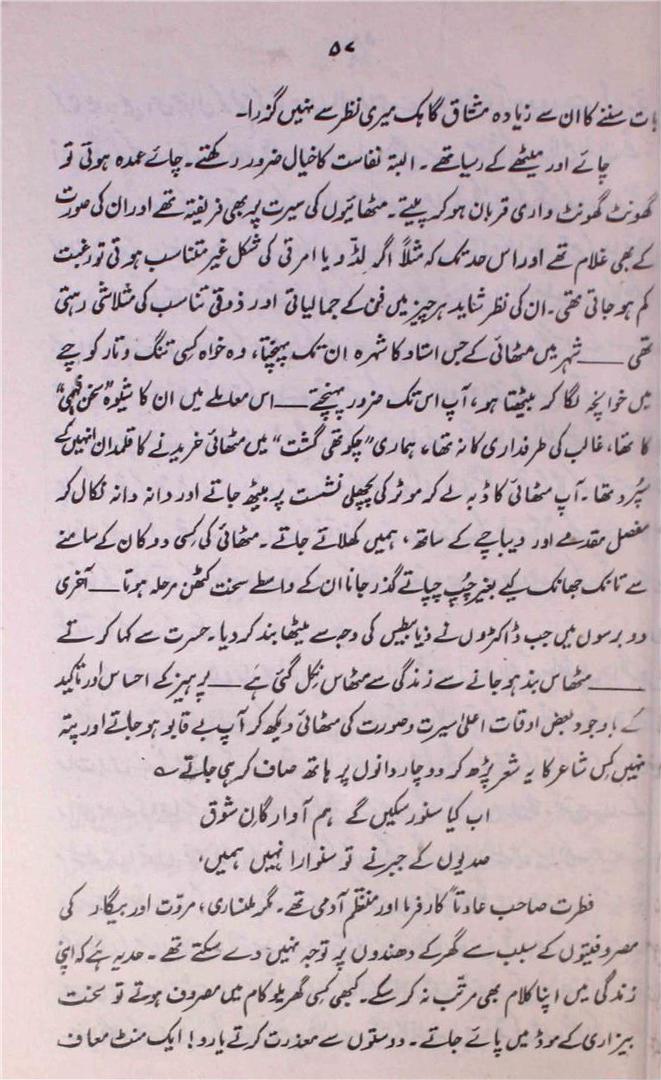 ۵۷
بات سننے کا ان سے زیادہ مشتاق گاہک میری نظر سے نہیں گزرا۔
چائے اور میٹھے کے رسیا تھے۔ البتہ نفاست کا خیال ضرور رکھتے۔ چائے عمدہ ہوتی تو
گھونٹ گھونٹ واری قربان ہو کر پیتے۔ مٹھائیوں کی سیرت پر بھی فریفتہ تھے اور ان کی صورت
کے بھی غلام تھے اور اس حد تک کہ مثلاً اگر لڈو یا امرتی کی شکل غیر متناسب ہوتی تو رغبت
کم ہو جاتی تھی۔ ان کی نظر شاید ہر چیز میں فن کے جمالیاتی اور ذوقی تناسب کی متلاشی رہتی
تھی ــــ شہر میں مٹھائی کے جس استاد کا شہرہ ان تک پہنچتا، وہ خواہ کسی تنگ و تار کوچے
میں خوانچہ لگا کر بیٹھتا ہو، آپ اس تک ضرور پہنچتے ــــ اس معاملے میں ان کا شیوہ "سخن فہمی"
کا تھا، غالب کی طرفداری کا نہ تھا، ہماری "چکوتھی گشت" میں مٹھائی خریدنے کا قلمدان انہیں کے
سپرد تھا۔ آپ مٹھائی کا ڈبہ لے کر موٹر کی پچھلی نشست پر بیٹھ جاتے اور دانہ دانہ نکال کر
مفصل مقدمے اور دیباچے کے ساتھ، ہمیں کھلاتے جاتے۔ مٹھائی کی کسی دوکان کے سامنے
سے تانک جھانک کیے بغیر چپ چپاتے گذر جانا ان کے واسطے سخت کٹھن مرحلہ ہوتا ــــ آخری
دو برسوں میں جب ڈاکٹروں نے ذیابیطیس کی وجہ سے میٹھا بند کر دیا۔ حسرت سے کہا کرتے
ــــ مٹھاس بند ہو جانے سے زندگی سے مٹھاس نکل گئی ہے ــــ پرہیز کے احساس اور تاکید
کے باوجود بعض اوقات اعلیٰ سیرت و صورت کی مٹھائی دیکھ کر آپ بے قابو ہو جاتے اور پتہ
نہیں کس شاعر کا یہ شعر پڑھ کر دو چار دانوں پر ہاتھ صاف کر ہی جاتے ؎
اب کیا سنور سکیں گے ہم آوارگانِ شوق
صدیوں کے جبر نے تو سنوارا نہیں ہمیں،
فطرت صاحب عادتاً کارفرما اور منظم آدمی تھے۔ مگر ملنساری، مروّت اور بیگار کی
مصروفیتوں کے سبب سے گھر کے دھندوں پر توجہ نہیں دے سکتے تھے۔ حد یہ ہے کہ اپنی
زندگی میں اپنا کلام بھی مرتّب نہ کر سکے۔ کبھی کسی گھریلو کام میں مصروف ہوتے تو سخت
بیزاری کے موڈ میں پائے جاتے۔ دوستوں سے معذرت کرتے یارو! ایک منٹ معاف